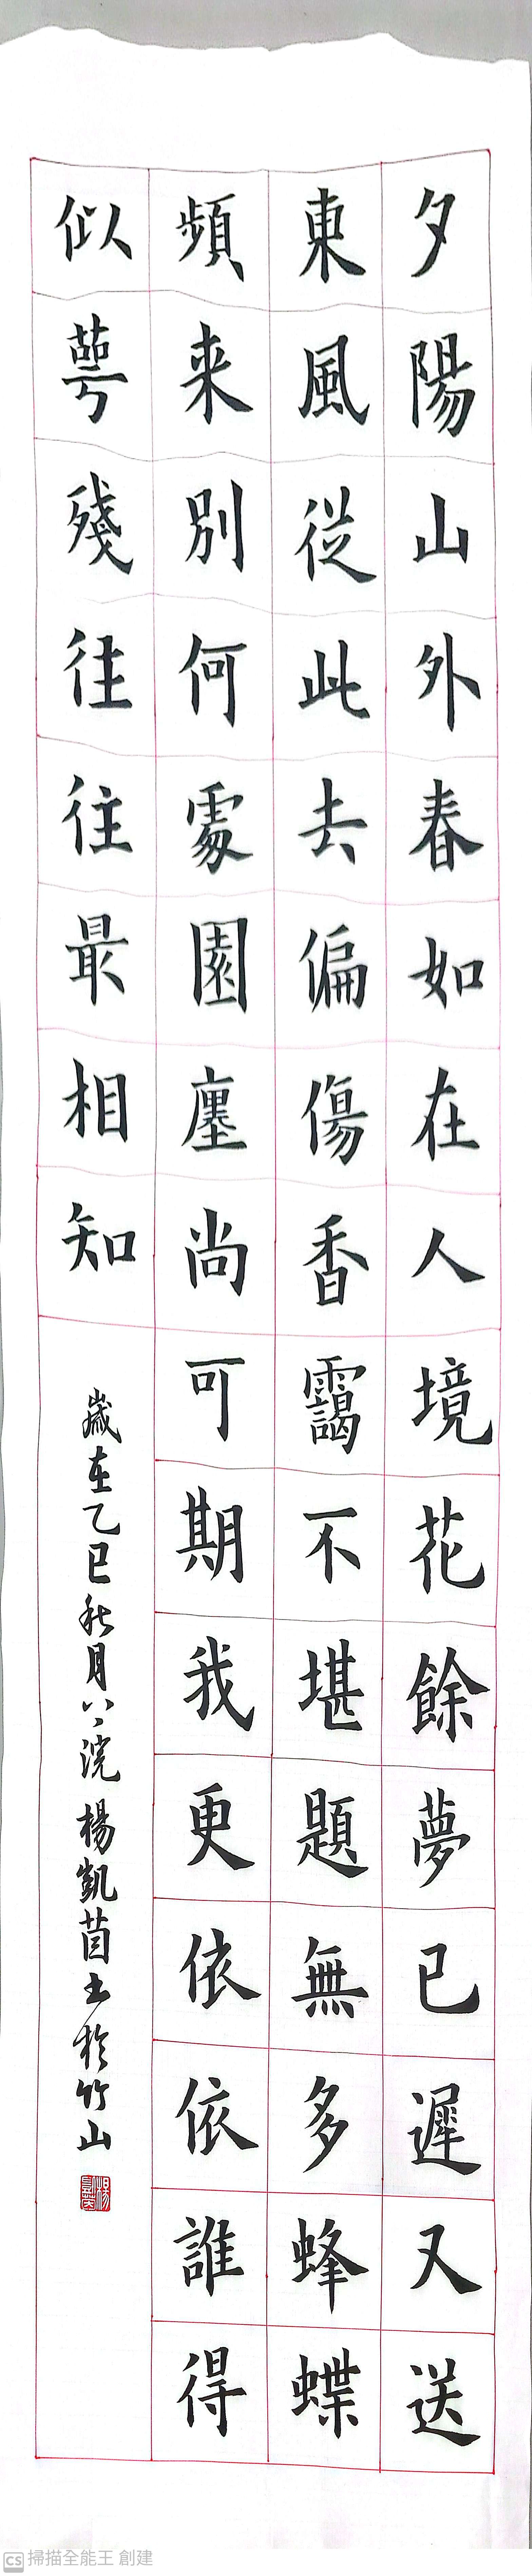 夕陽山外春如在人境花餘夢已遲又送
東風從此去偏傷香靄不堪題無多蜂蝶
頻来別何處園塵尚可期我更依依誰得
似萼殘往往最相知
歲在乙巳秋月八浣 楊凱茵書於竹山
CS 掃描全能王 創建